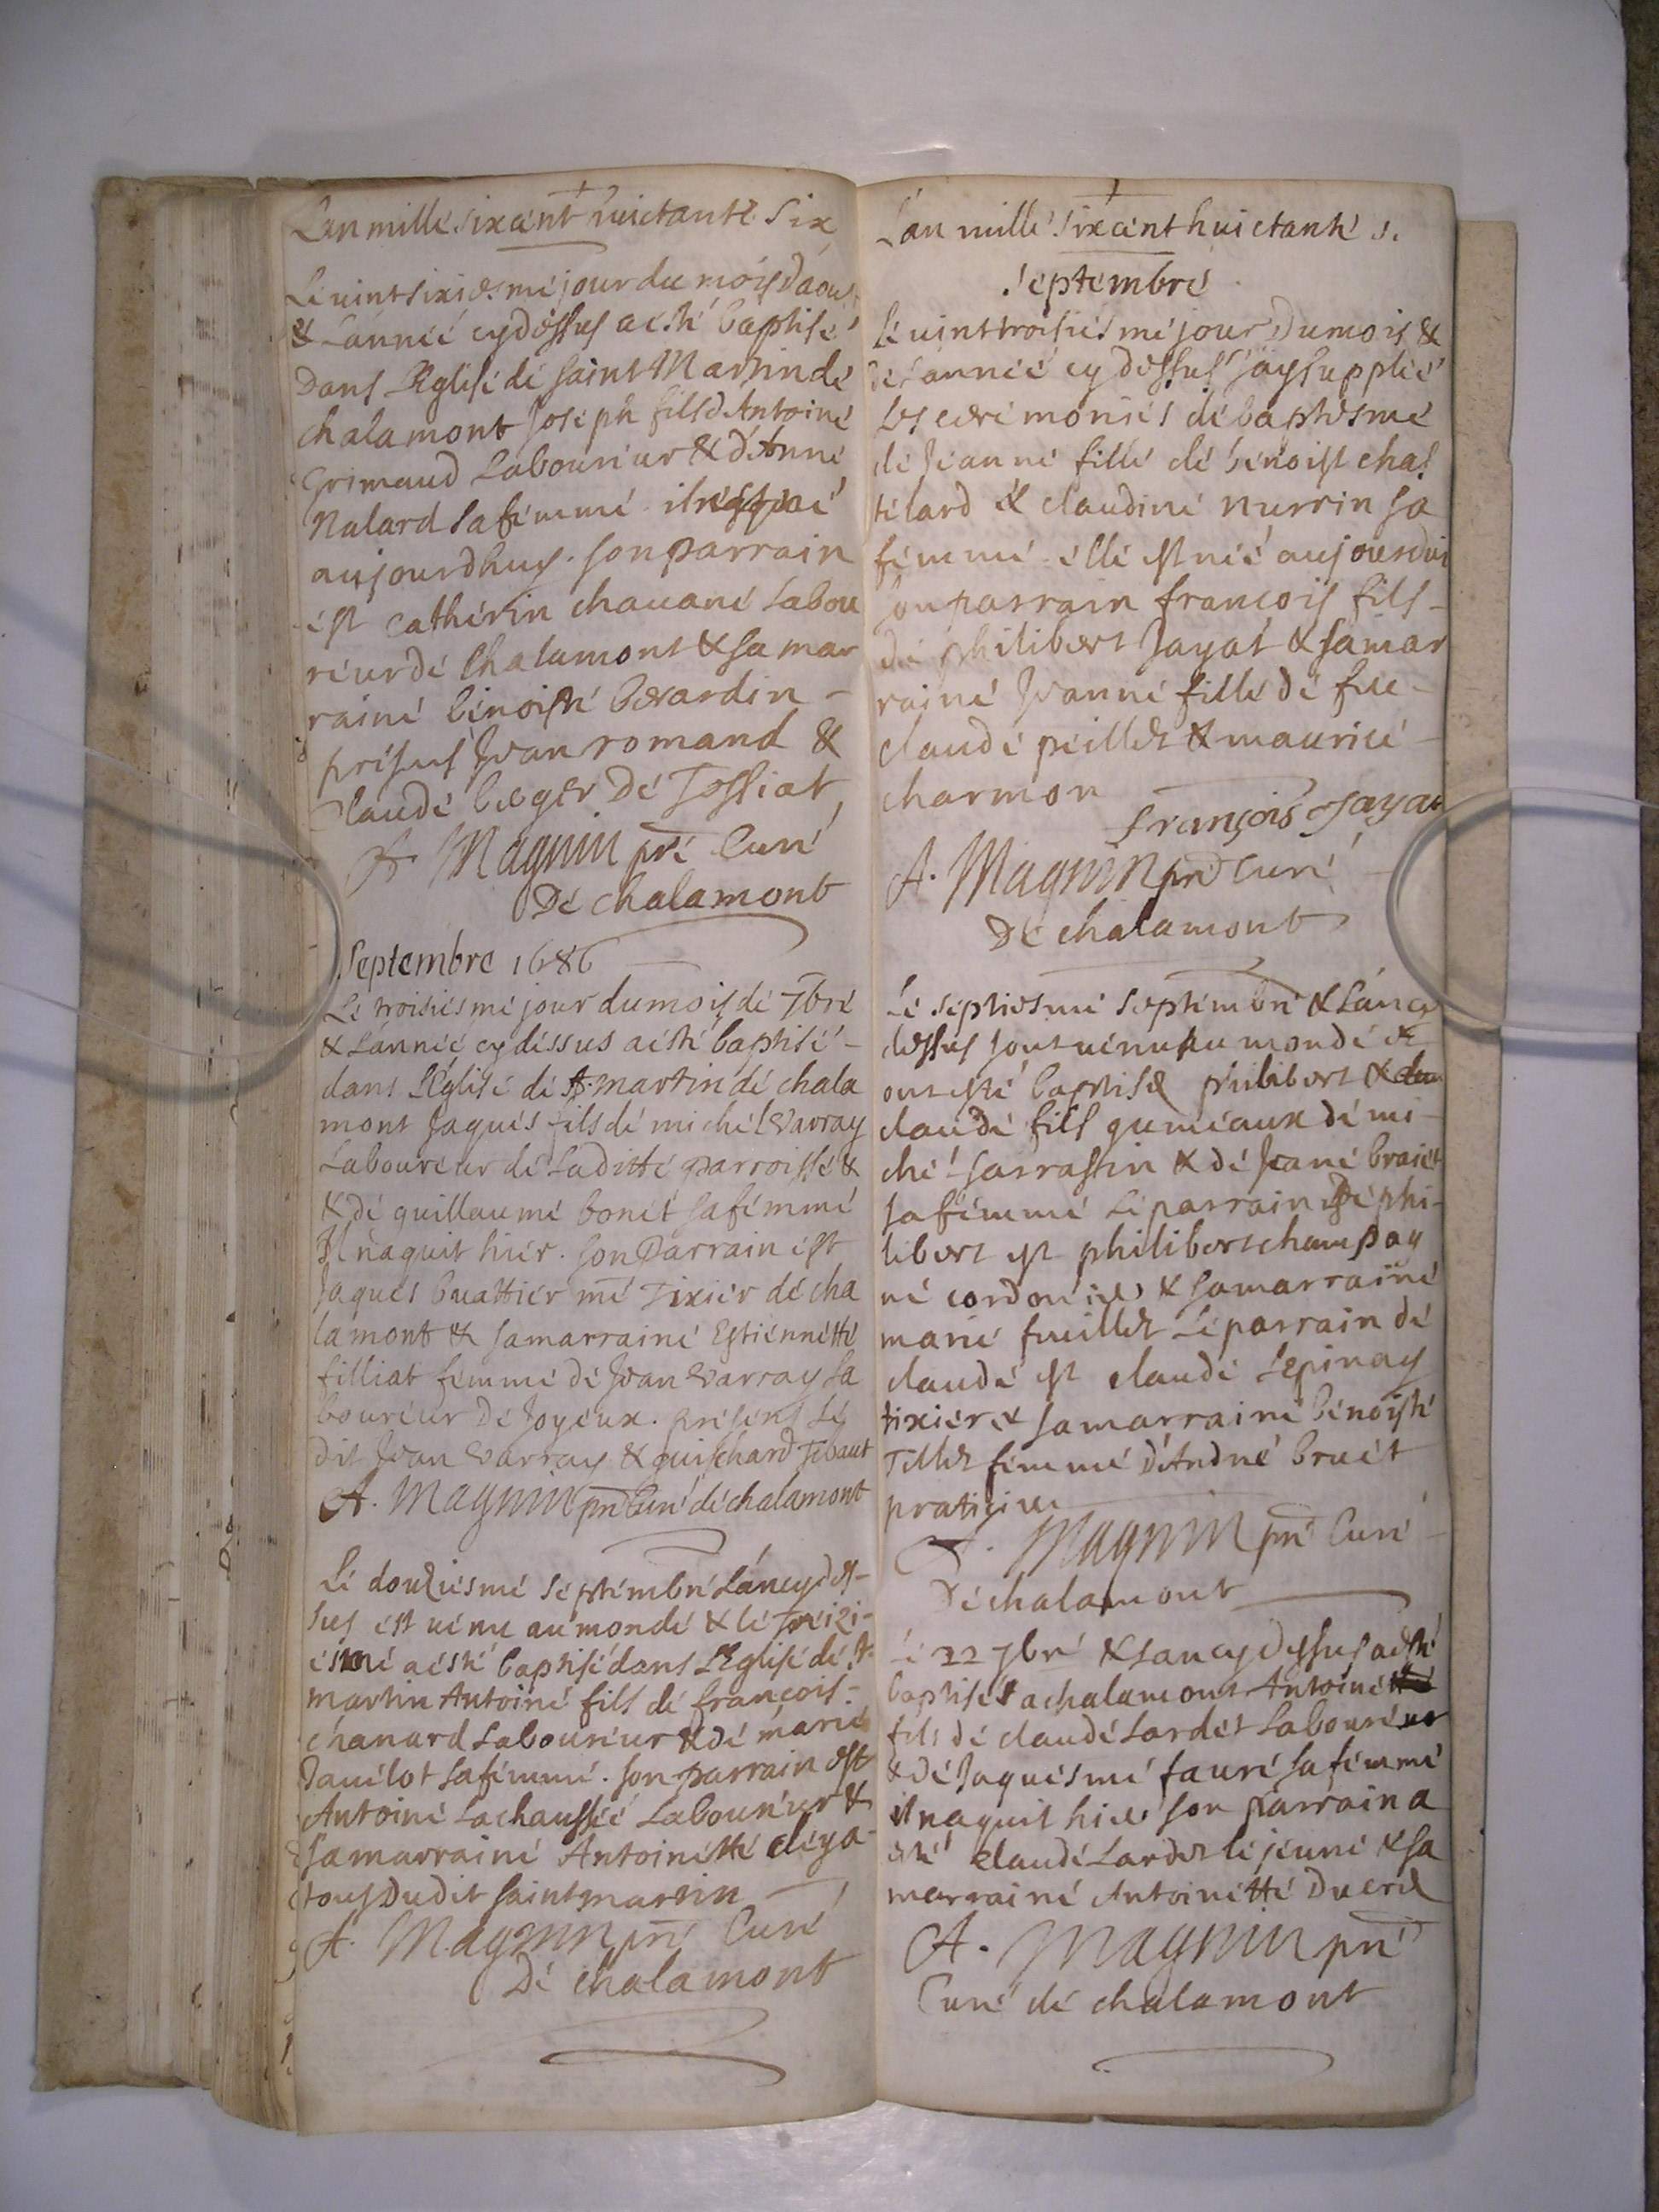 L'an mille six cent huictante six
Le vint sixiesme jour du mois d'aoust
& l'année cy dessus a esté baptisé
dans l'Eglise de saint Martin de
chalamont Joseph fils d'Antoine
Grimaud Laboureur & d'Anne
Nalard sa femme il est né
aujourdhuy. son parrain
est catherin chavane labou
reur de Chalamont & sa mar
raine benoiste berardin -
presens Jean romand &
Claude berger de Tossiat
A. Magnin pre Curé
De chalamont
Septembre 1686
Le troisiesme jour du mois de 7bre
& L'année cy dessus a esté baptisé -
dans l'Eglise de St martin de chala
mont Jaques fils de michel Varray
Laboureur de Laditte parroisse &
& de guillaume bonet sa femme
Il naquit hier. son Parrain est
Jaques buattier me Tixier de cha
lamont & sa marraine Estiennette
filliat femme de Jean Varray la
boureur de Joyeux. presens le
dit Jean Varray & guischard Tibaut
A. Magnin pre Curé de chalamont
Le douziesme septembre L'an cy des-
sus est venu au monde & le treizi-
esme a esté baptisé dans L'Eglise de St
martin Antoine fils de francois -
chanard Laboureur & de marie
Javelot sa femme. son parrain est
Antoine Lachaussée Laboureur &
sa marraine Antoinette
tous dudit saint martin
A. Magnin pre Curé
De chalamont
L'an mille six cent huictante s.
Septembre
Le vint troisiesme jour Du mois &
de L'année cy dessus j'ay supplée
les ceremonies de baptesme
de Jeanne fille de benoist chas
telard & claudine nurrin sa
femme elle est née aujourdui
son parrain francois fils -
de philibert Jayat & sa mar
raine Jeanne fille de feu -
claude peillet & maurice -
charmon
françois Jayat
A. Magnin pre Curé
De chalamont
Le septiesme septembre & L'an cy
dessus sont venu au monde &
ont esté baptisez philibert &
claude fils gumeaux de mi-
chel sarrasin & de Jeane
sa femme Le parrain de phi-
libert est philibert champay
ne cordonier & sa marraine
marie fueillet Le parrain de
claude est claude Lepinay
tixier & sa marraine benoiste
Tellet femme d'André bruet
praticien
A. Magnin pre Curé -
De chalamont
Le 22 7bre & L'an cy dessus a esté
baptisé a chalamont Antoine
fils de claude Lardet Laboureur
& de Jaquesme faure sa femme
il naquit hier son parrain a
esté claude Lardet le jeune & sa
marraine Antoinette
A. Magnin pre
Curé de chalamont